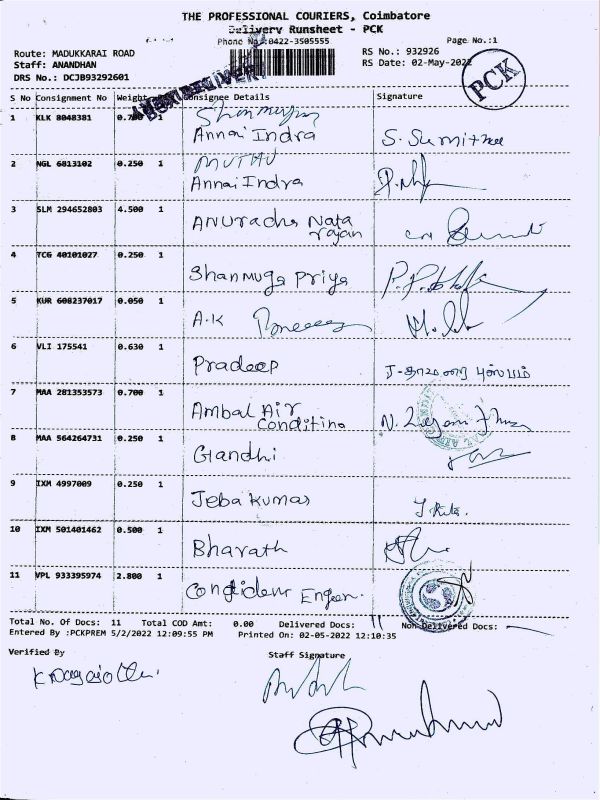 THE PROFESSIONAL COURIERS, Coimbatore
Delivery Runsheet - PCK
Phone No.:0422-3505555
Page No.:1
Route: MADUKKARAI ROAD
Staff: ANANDHAN
DRS No.: DCJB93292601
RS No.: 932926
RS Date: 02-May-2022
PCK
S No Consignment No Weight Consignee Details Signature
1 KLK 8048381 0.700 1
Annai Indra S. Sumithra
2 NGL 6813102 0.250 1 MUTHU
Annai Indra
3 SLM 294652803 4.500 1 Anuradha Nata
rajan
4 TCG 40101027 0.250 1 Shanmuga Priya
5 KUR 608237017 0.050 1 A.K
6 VLI 175541 0.630 1 Pradeep
7 MAA 281353573 0.700 1 Ambal Air
Conditino
8 MAA 564264731 0.250 1 Gandhi
9 IXM 4997009 0.250 1 Jeba Kumar
10 IXM 501401462 0.500 1 Bharath
11 VPL 933395974 2.800 1
Total No. Of Docs: 11 Total COD Amt: 0.00 Delivered Docs: 11 Non-Delivered Docs:
Entered By :PCKPREM 5/2/2022 12:09:55 PM Printed On: 02-05-2022 12:10:35
Verified By Staff Signature